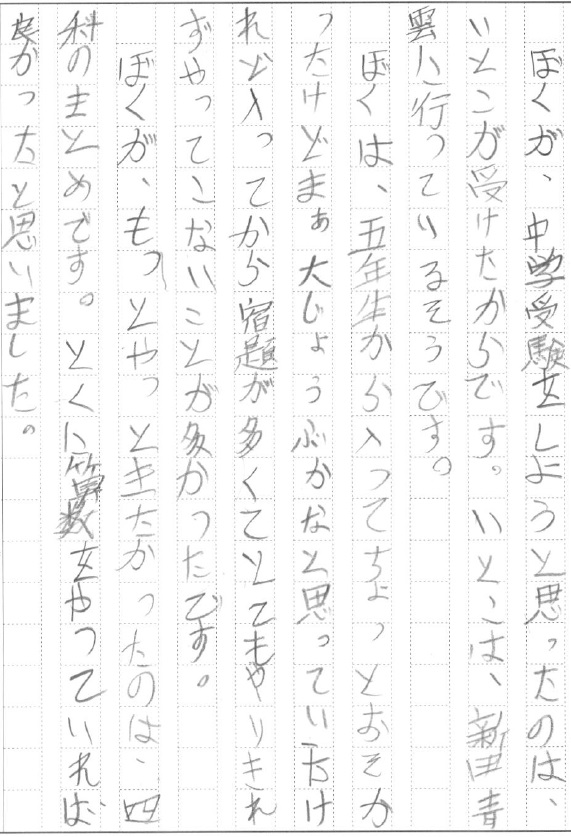 ぼくが、中学受験をしようと思ったのは、
いとこが受けたからです。いとこは、新田青
雲に行っているそうです。
ぼくは、五年生から入ってちょっとおそか
ったけどまぁ大じょうぶかなと思っていたけ
れど入ってから宿題が多くてとてもやりきれ
ずやってこないことが多かったです。
ぼくが、もっとやっときたかったのは、四
科のまとめです。とくに算数をやっていれば
良かったと思いました。